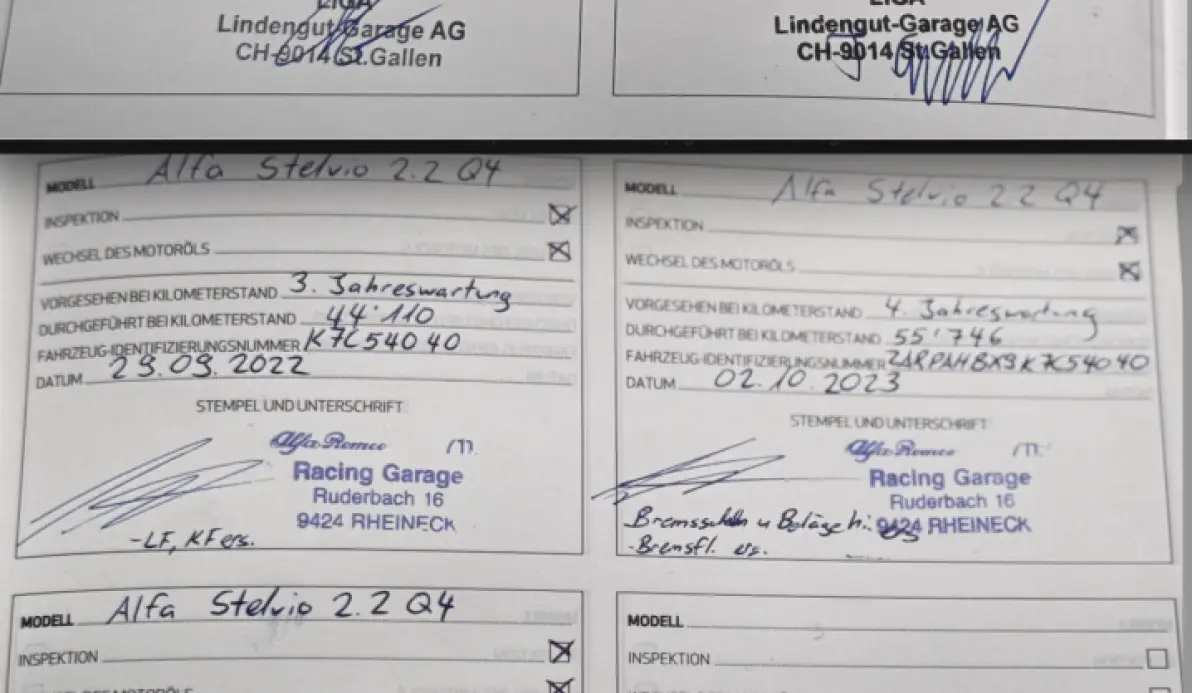 Lindengut-Garage AG
CH-9014 St.Gallen
LIGA
Lindengut-Garage AG
CH-9014 St.Gallen
MODELL Alfa Stelvio 2.2 Q4
INSPEKTION
WECHSEL DES MOTORÖLS
VORGESEHEN BEI KILOMETERSTAND 3. Jahreswartung
DURCHGEFÜHRT BEI KILOMETERSTAND 44'110
FAHRZEUG-IDENTIFIZIERUNGSNUMMER K7C54040
DATUM 29.09.2022
STEMPEL UND UNTERSCHRIFT
Alfa Romeo
Racing Garage
Ruderbach 16
9424 RHEINECK
-LF, KF ers.
MODELL Alfa Stelvio 2.2 Q4
INSPEKTION
WECHSEL DES MOTORÖLS
VORGESEHEN BEI KILOMETERSTAND 4. Jahreswartung
DURCHGEFÜHRT BEI KILOMETERSTAND 55'746
FAHRZEUG-IDENTIFIZIERUNGSNUMMER ZARPAHBX9K7C54040
DATUM 02.10.2023
STEMPEL UND UNTERSCHRIFT
Alfa Romeo
Racing Garage
Ruderbach 16
9424 RHEINECK
u Beläge hi.
-Bremsfl. ers.
MODELL Alfa Stelvio 2.2 Q4
INSPEKTION
WECHSEL DES MOTORÖLS
MODELL
INSPEKTION